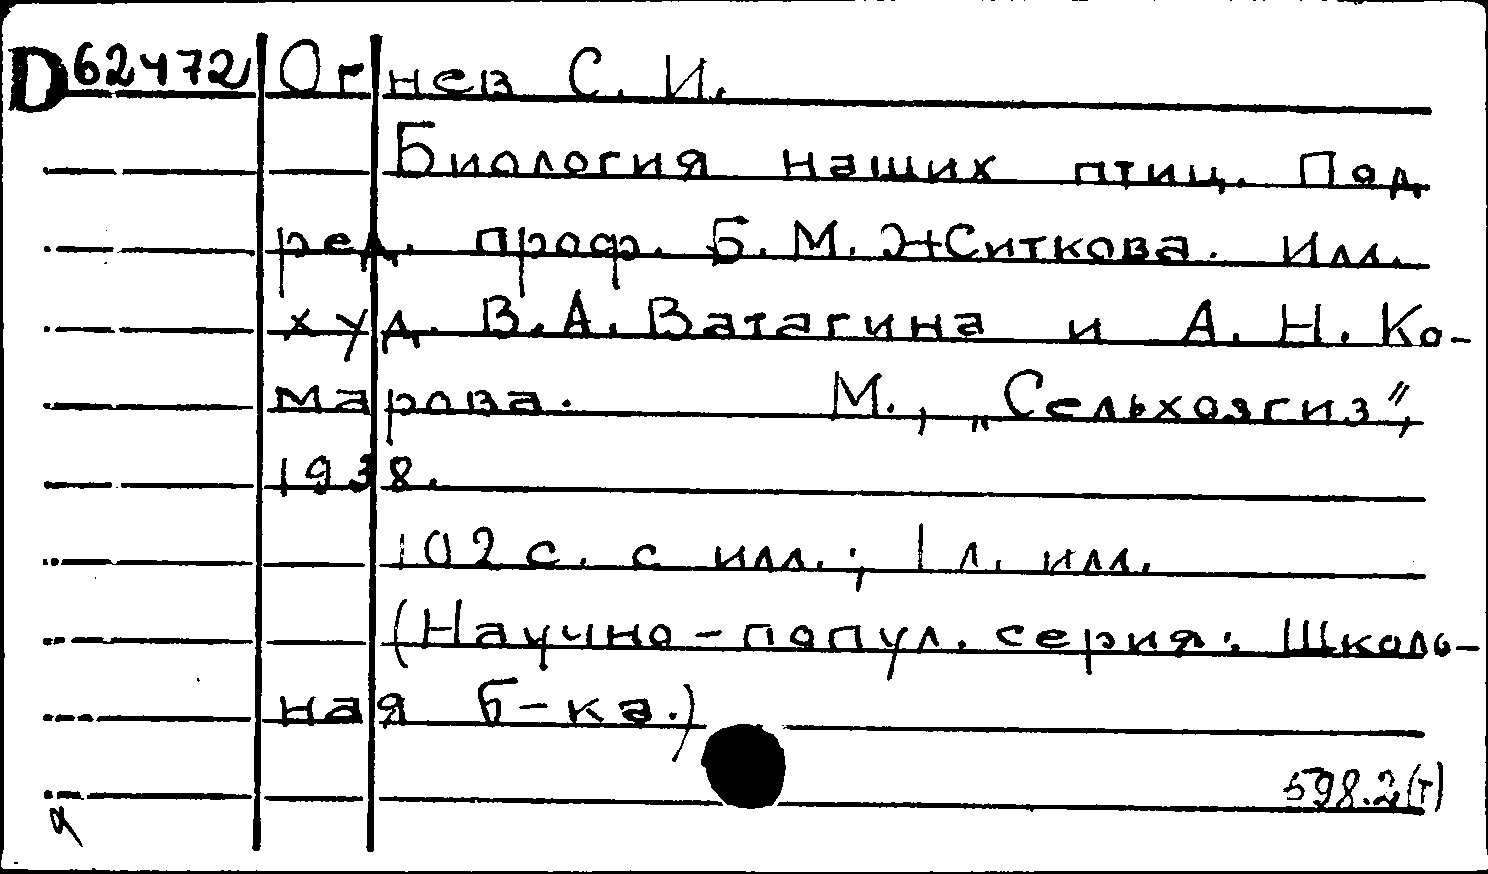 D62472 Огнев С. И.
Биология наших птиц. Под
ред. проф. Б. М. Житкова. Илл.
худ. В. А. Ватагина и А. Н. Ко-
марова. М., „Сельхозгиз",
1938.
102 с. с илл.; 1 л. илл.
(Научно-попул. серия: Школь-
ная б-ка.)
598.2(т)